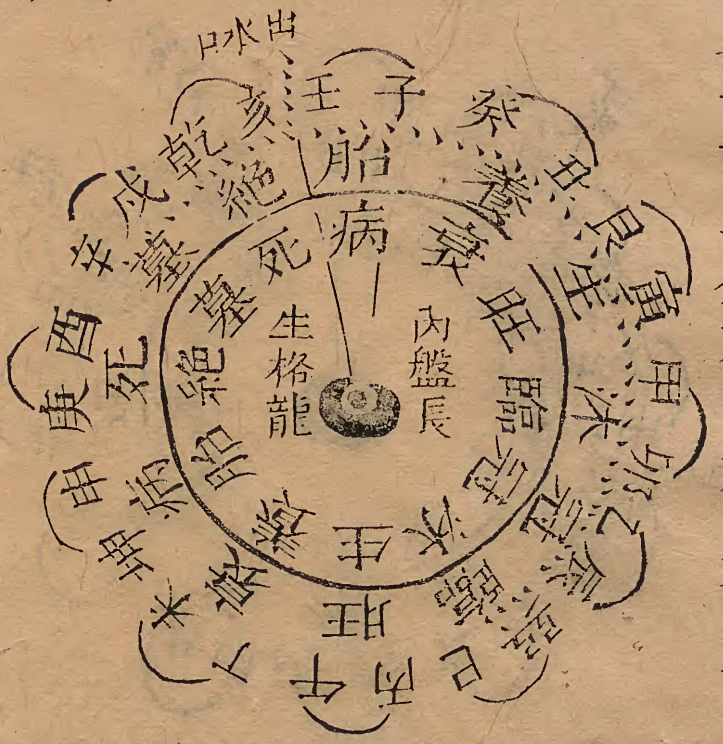 出水口
壬子癸丑艮寅甲卯乙辰巽巳丙午丁未坤申庚酉辛戌乾亥
胎養生沐冠臨旺衰病死墓絶
病衰旺臨冠沐生養胎絶墓死
內盤長
生格龍